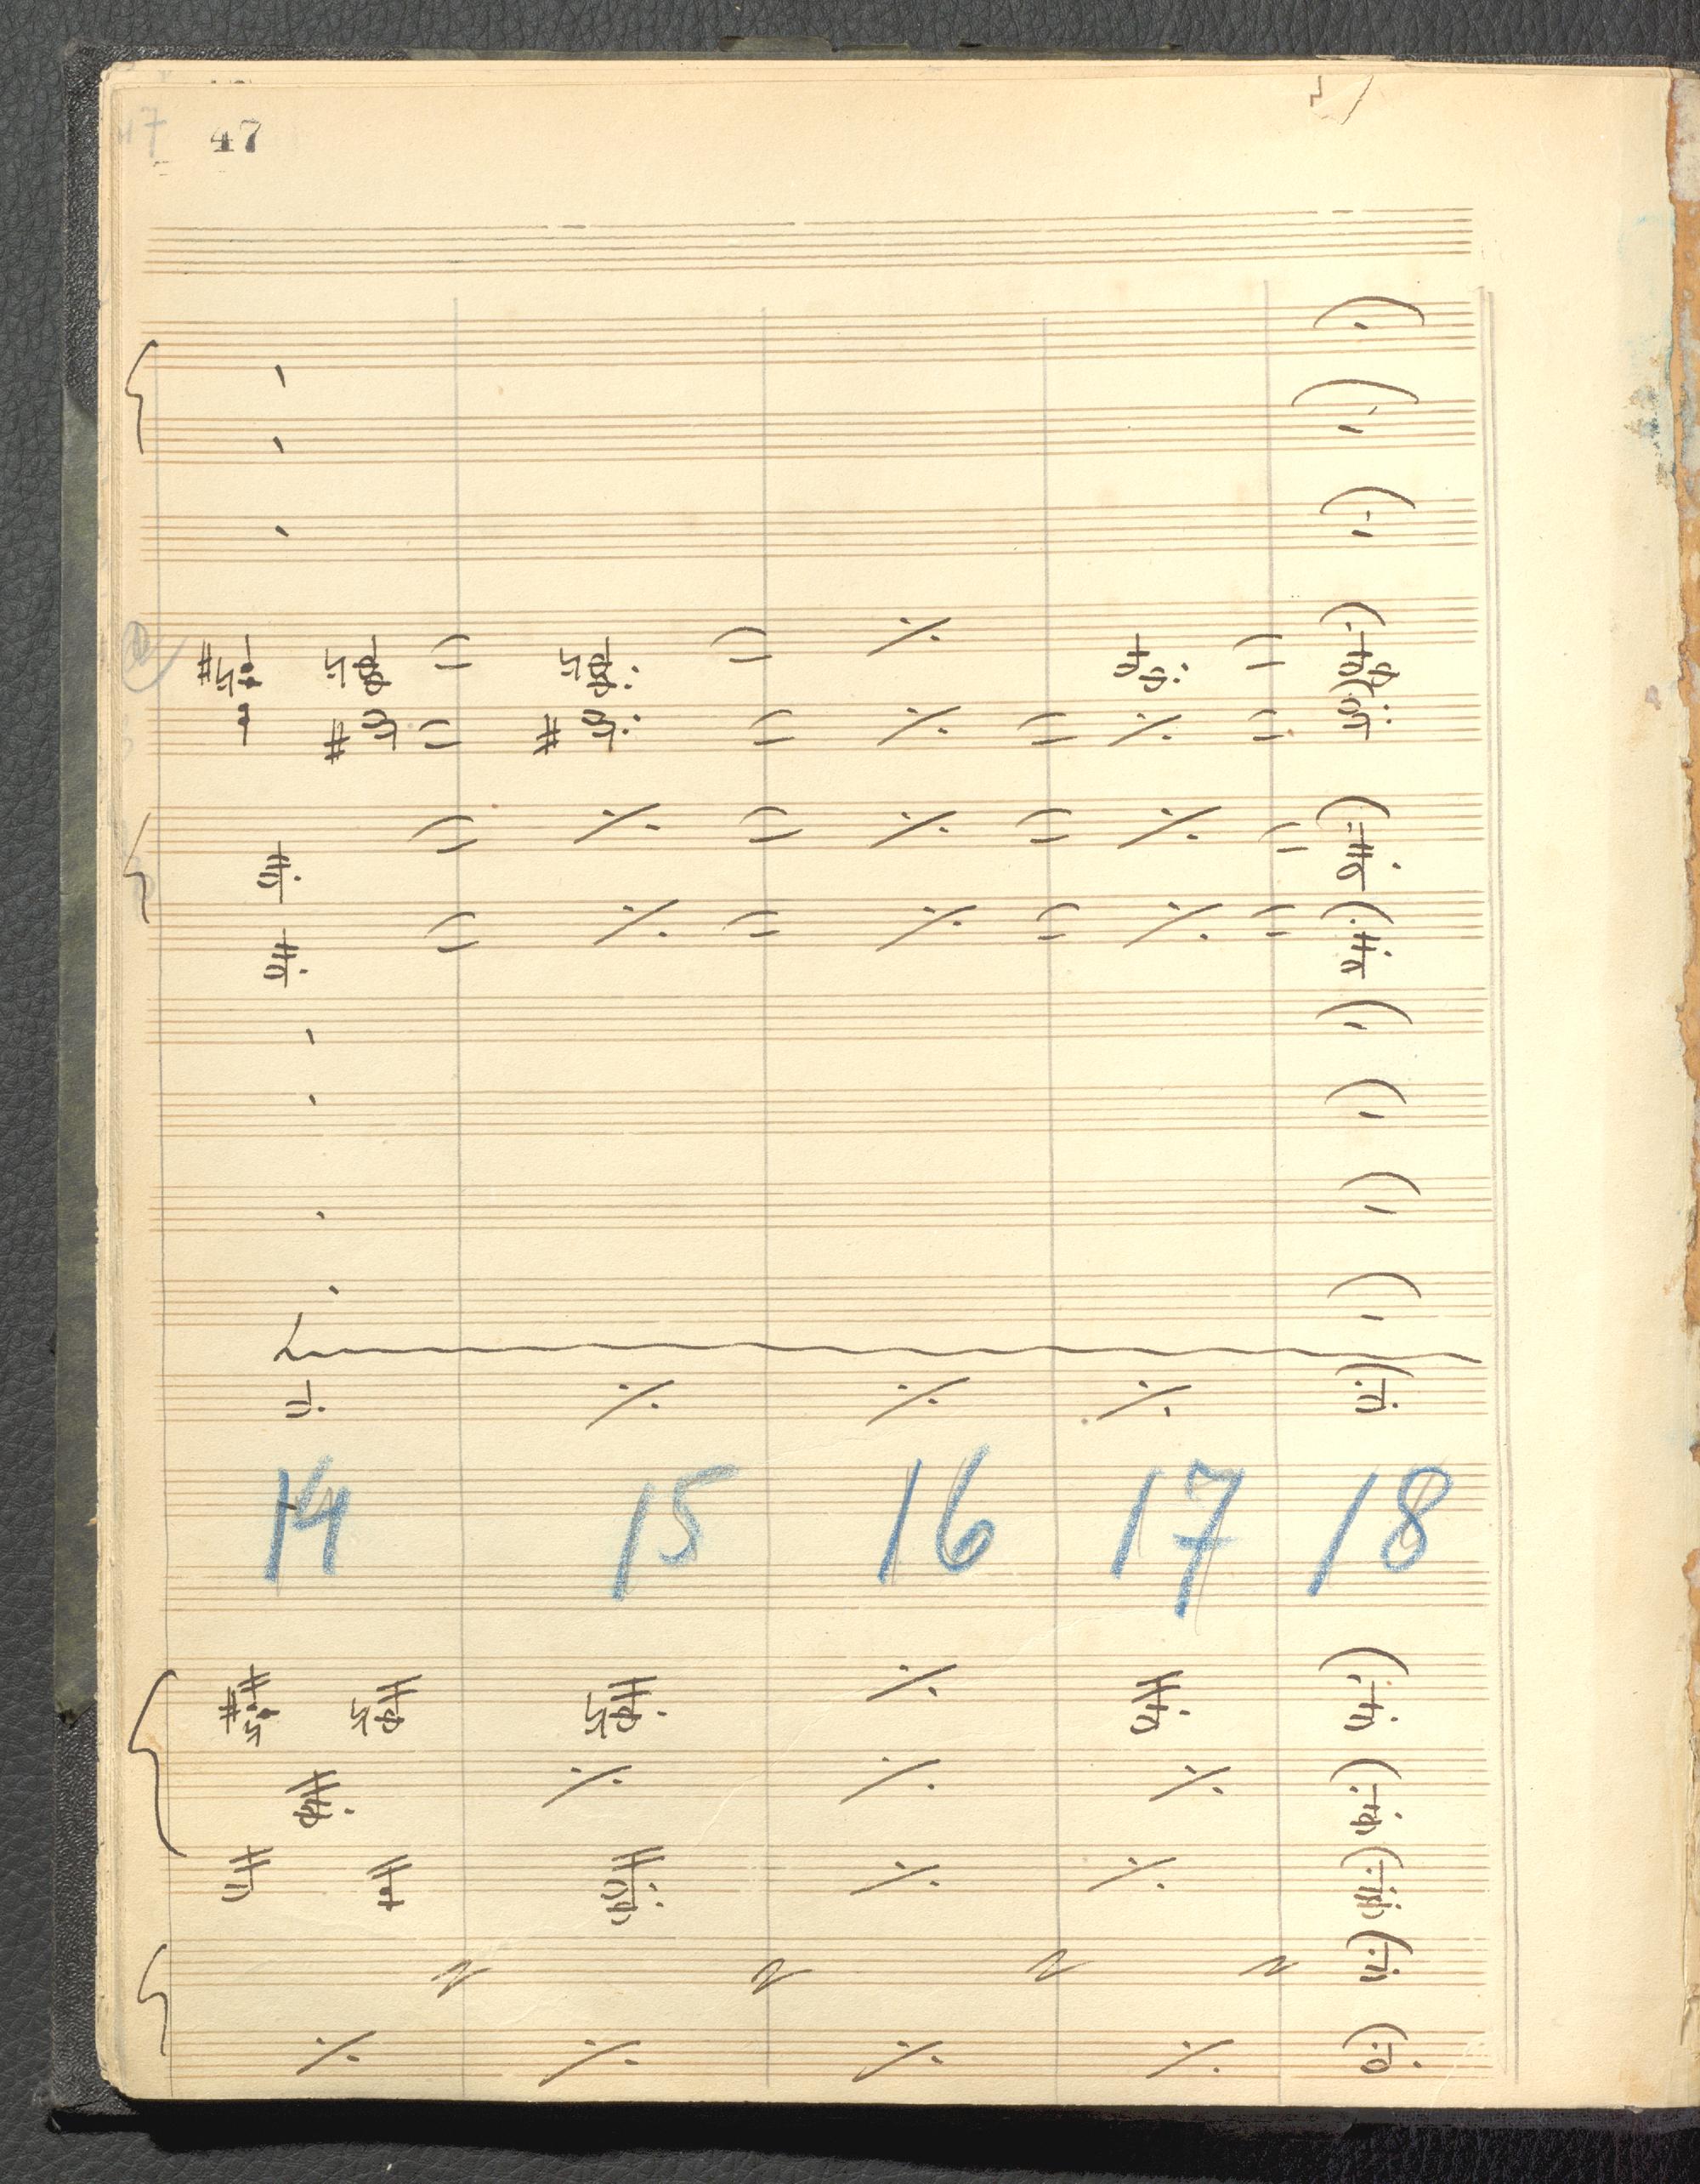 47
47
14 15 16 17 18